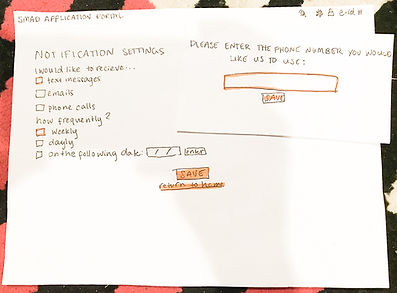 SMAD APPLICATION PORTAL
NOTIFICATION SETTINGS
I would like to recieve...
text messages
emails
phone calls
how frequently?
weekly
dayly
on the following date: / / enter
SAVE
return to home
PLEASE ENTER THE PHONE NUMBER YOU WOULD
LIKE US TO USE:
SAVE